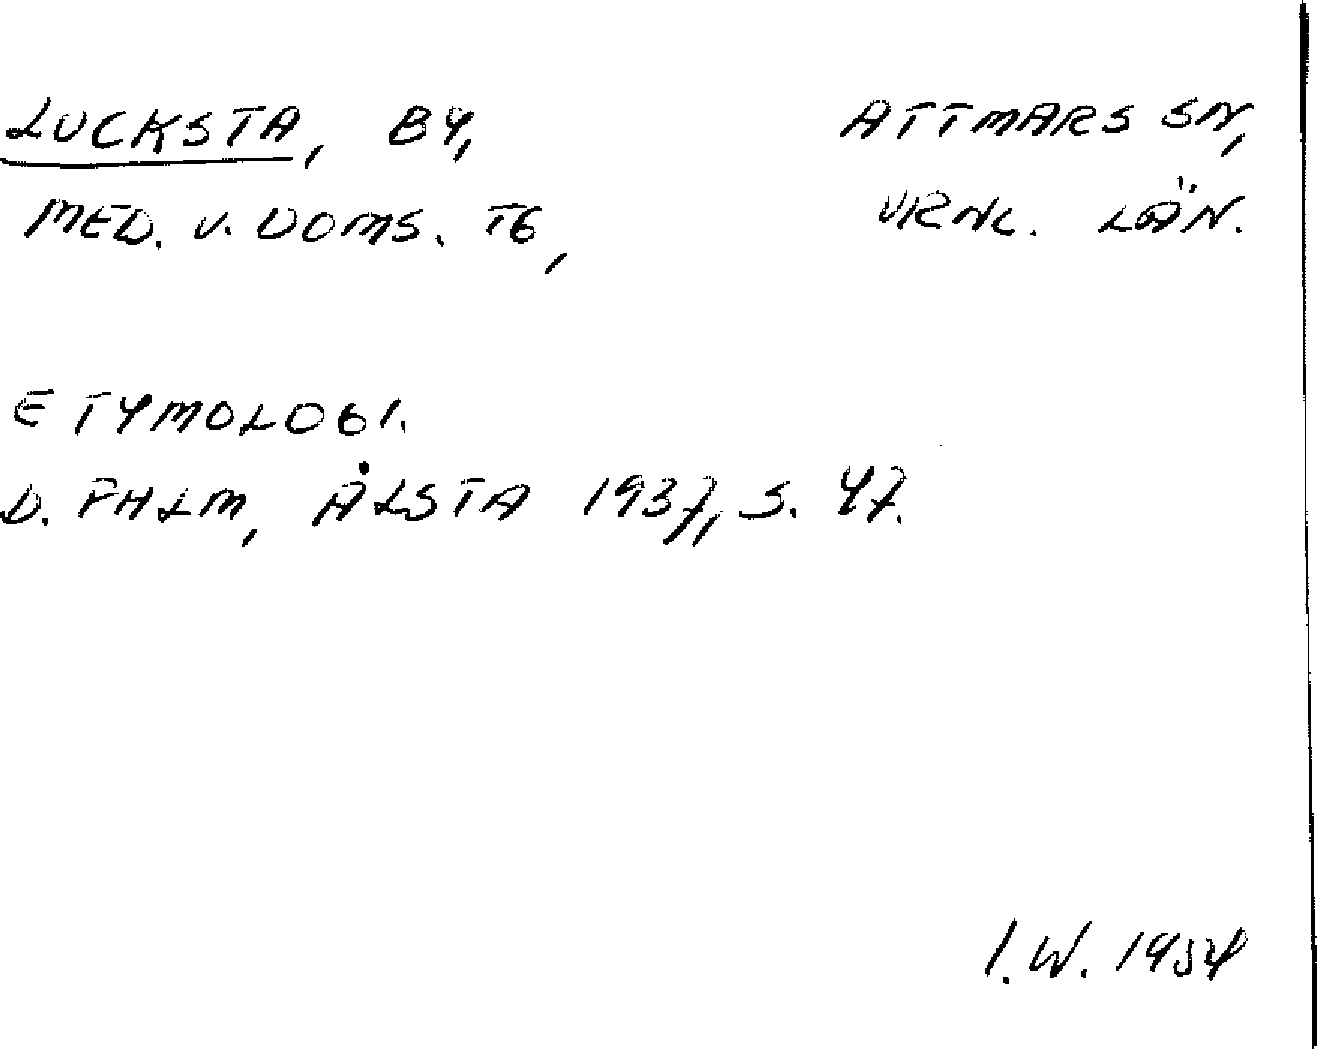 LUCKSTA, BY, ATTMARS SN,
MED. V. DOMS. TG, VRNL. LÄN.
ETYMOLOGI.
D. PALM, ÅLSTA 1937, S. 47.
I.W. 1954